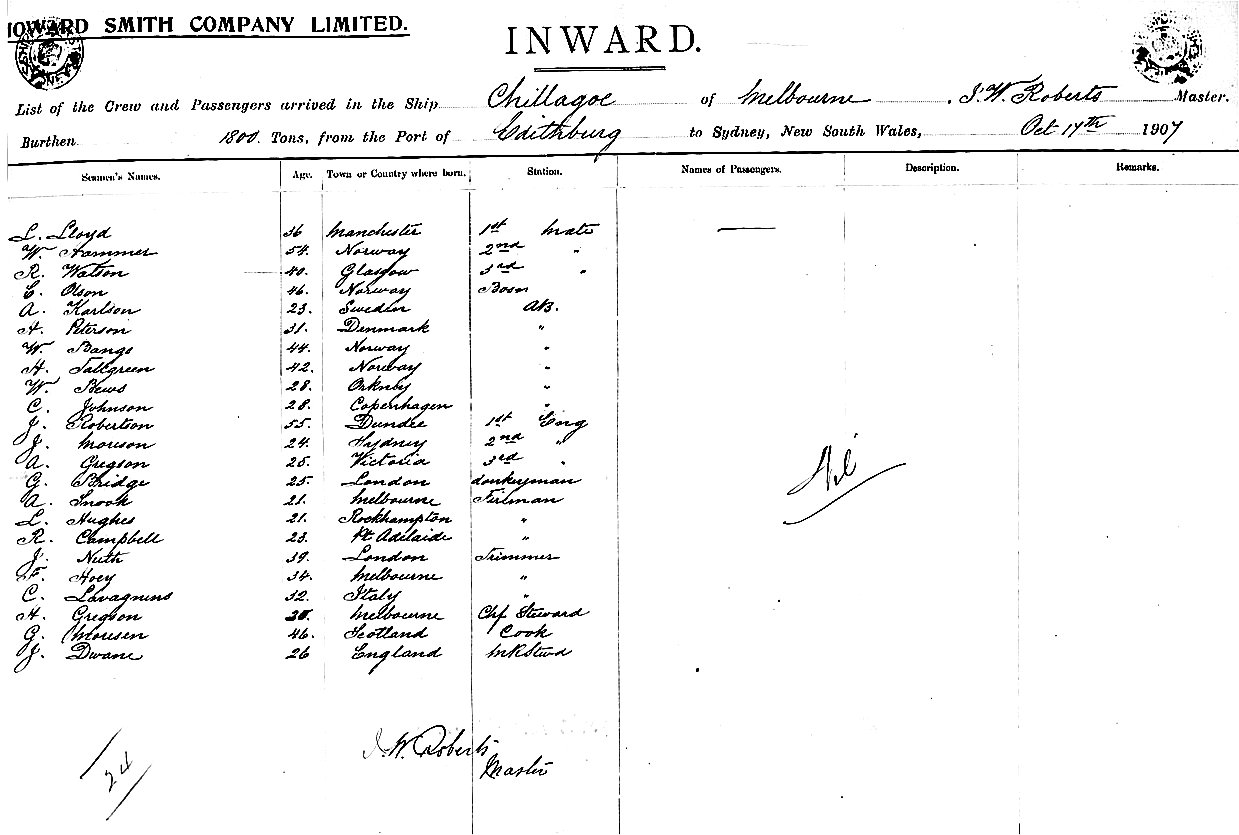 HOWARD SMITH COMPANY LIMITED.
INWARD.
List of the Crew and Passengers arrived in the Ship Chillagoe of Melbourne, J. W. Roberts Master.
Burthen 1800 Tons, from the Port of Edithburg to Sydney, New South Wales, Oct 17th 1907
Seamen's Names. Age. Town or Country where born. Station. Names of Passengers. Description. Remarks.
L. Lloyd 36 Manchester 1st Mate —
W. Hammer 54. Norway 2nd "
R. Watson 40. Glasgow 3rd "
E. Olson 46. Norway Bosn
A. Karlson 23. Sweden AB.
H. Peterson 31. Denmark "
W. Bange 44. Norway "
H. Tallgreen 42. Norway "
W. Bews 28. Orkney "
C. Johnson 28. Copenhagen "
J. Robertson 55. Dundee 1st Eng
J. Morison 24. Sydney 2nd "
A. Gregson 25. Victoria 3rd "
G. Bridge 25. London donkeyman
A. Snook 21. Melbourne Fireman
L. Hughes 21. Rockhampton "
R. Campbell 23. Pt Adelaide "
J. Neith 39. London Trimmer
F. Hoey 34. Melbourne "
C. Lavagnino 32. Italy "
H. Gregson Melbourne Chf Steward
G. Morisen 46. Scotland Cook
J. Dwane 26 England MR Stwd
Nil
J. W. Roberts
Master
24